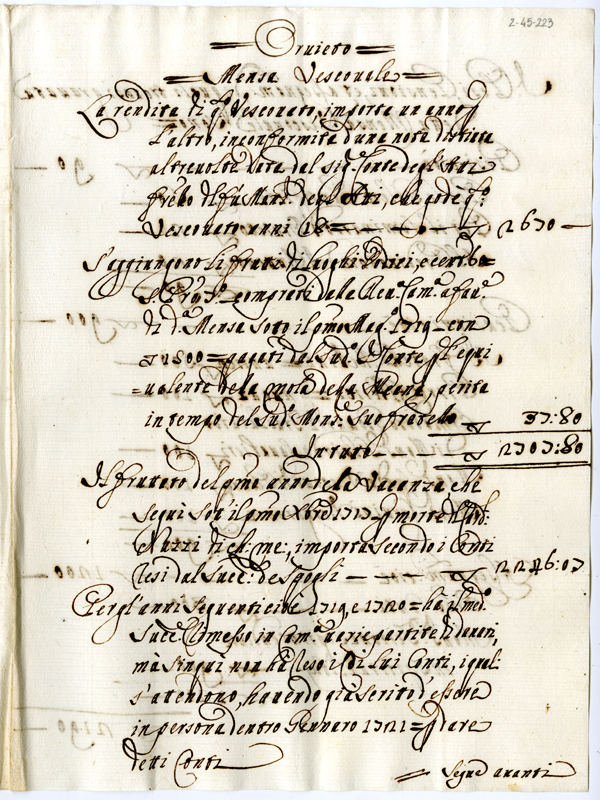 2-45-223
= Orvieto =
= Mensa Vescovale =
La rendita di q.o Vescovato, importa un anno p
l'altro, in conformità d'una nota distinta
altre volte data dal sig.r Conte degl'Atti
frełło del fù Mons.r degl'Atti, che godè q.o
Vescovato anni 18 = — — — 2670 —
S'aggiungono li frutti di luoghi
comprati dalla Rev.a Cam.a a fav.e
di d.a Mensa sotto il pmo Mag.o 1719 — con
1800 = pagati dal sud.o Conte p l'equi
= valente della mola della Meana, perita
in tempo del sud.o Mons.r suo fratello 37:80
In tutto — — — 2707:80
Il fruttato del pmo anno della Vacanza che
seguì sotto il pmo Xbre 1717 — p morte del Card.
Nuzzi di ch: me:, importa secondo i Conti
resi dal Succ.e de Spogli — — — 2246:07
Per gl'anni seguenti cioè 1719, e 1720 = hà il med.o
Succ.e rimesso in Cam.a varie partite di danari,
mà sin qui non hà reso i di lui Conti, i quali
s'attendono, havendo già scritto d'essere
in persona dentro Gennaro 1721 = p dare
detti Conti
= Segue avanti